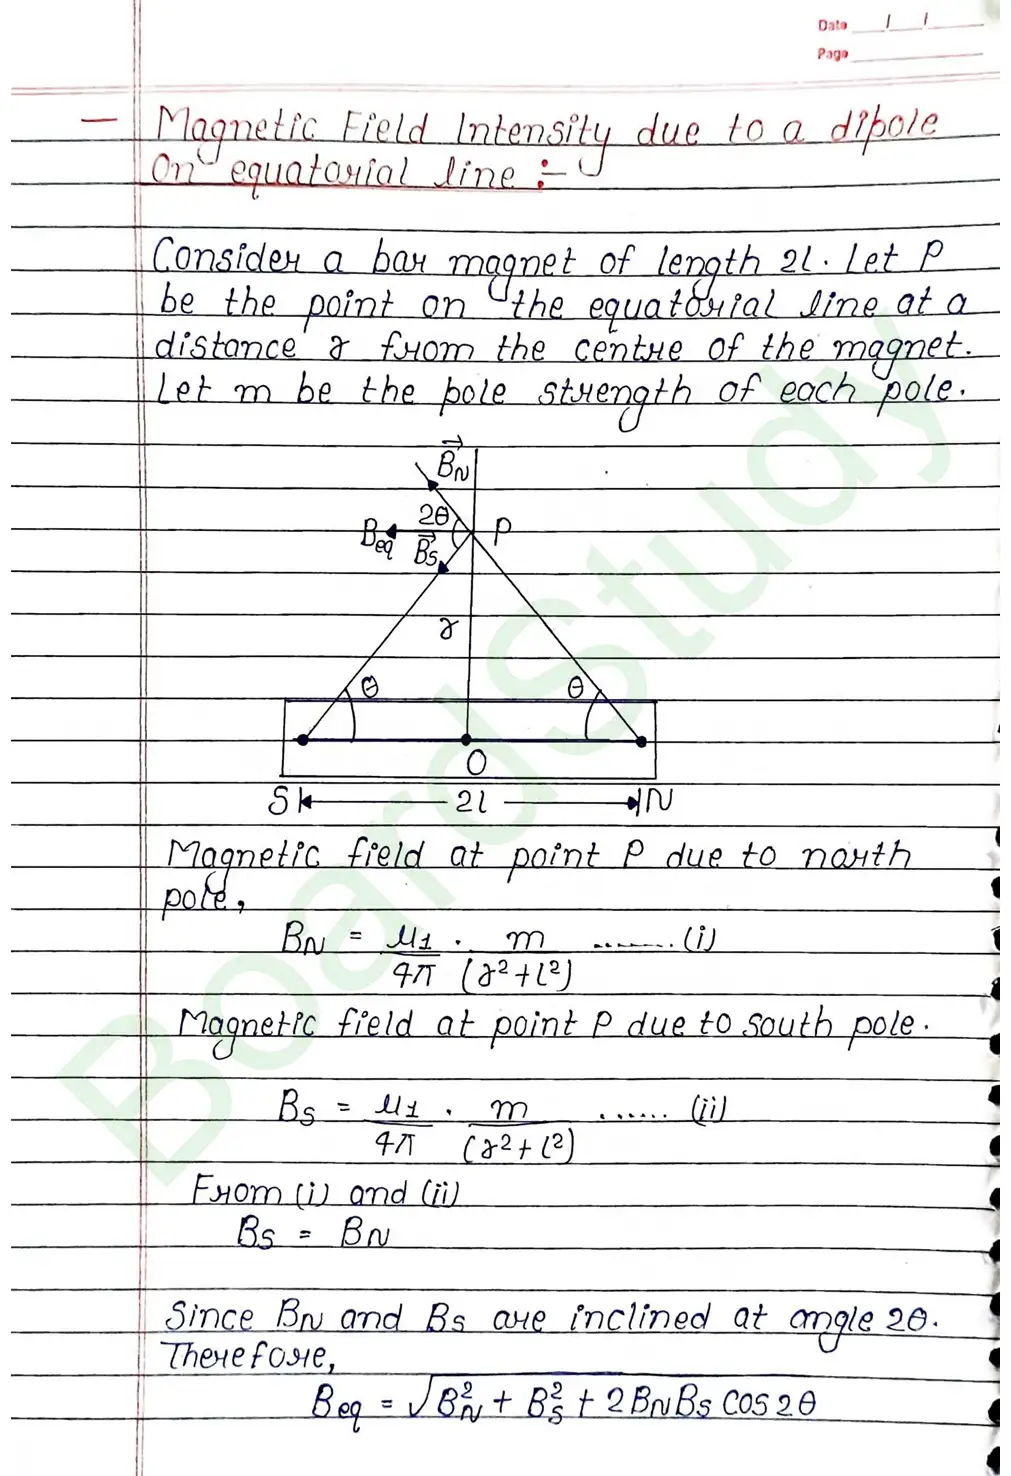 Date / /
Page
— Magnetic Field Intensity due to a dipole
On equatorial line :-
Consider a bar magnet of length 2l. Let P
be the point on the equatorial line at a
distance r from the centre of the magnet.
Let m be the pole strength of each pole.
B⃗N
2θ
Beq
B⃗s
P
r
θ
θ
O
S
2l
N
Magnetic field at point P due to north
pole,
BN = μ1/4π . m/(r²+l²) ......... (i)
Magnetic field at point P due to south pole.
Bs = μ1/4π . m/(r²+l²) ...... (ii)
From (i) and (ii)
Bs = BN
Since BN and Bs are inclined at angle 2θ.
Therefore,
Beq = √(BN² + Bs² + 2BNBs cos2θ)
BoardStudy